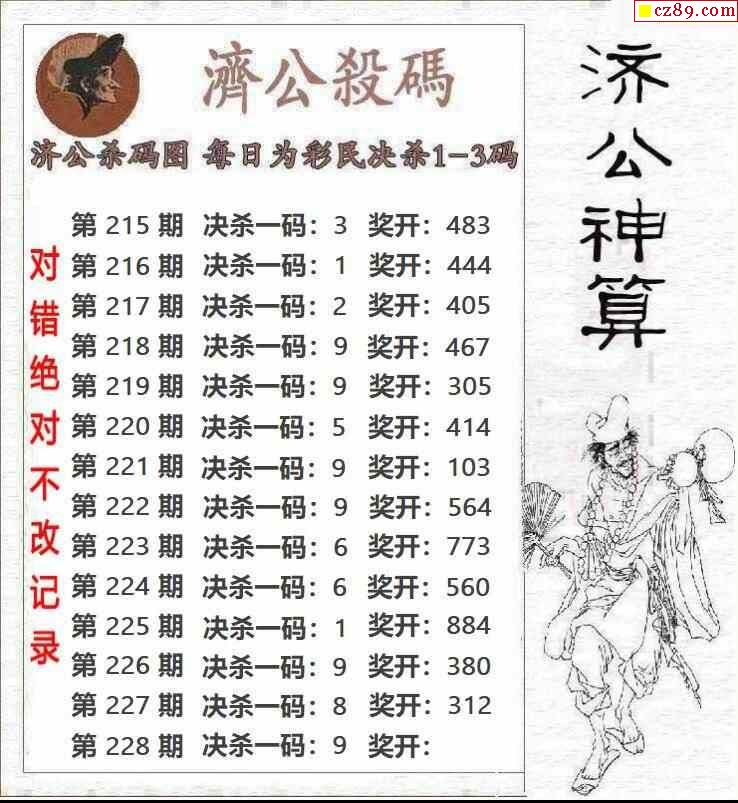 cz89.com
濟公殺碼
济公杀码图 每日为彩民决杀1-3码
第 215 期 决杀一码：3 奖开：483
第 216 期 决杀一码：1 奖开：444
第 217 期 决杀一码：2 奖开：405
第 218 期 决杀一码：9 奖开：467
第 219 期 决杀一码：9 奖开：305
第 220 期 决杀一码：5 奖开：414
第 221 期 决杀一码：9 奖开：103
第 222 期 决杀一码：9 奖开：564
第 223 期 决杀一码：6 奖开：773
第 224 期 决杀一码：6 奖开：560
第 225 期 决杀一码：1 奖开：884
第 226 期 决杀一码：9 奖开：380
第 227 期 决杀一码：8 奖开：312
第 228 期 决杀一码：9 奖开：
对错绝对不改记录
济公神算